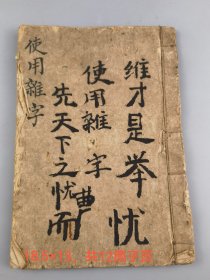 维才是举忧
使用雜字
先天下之忧而
使用雜字